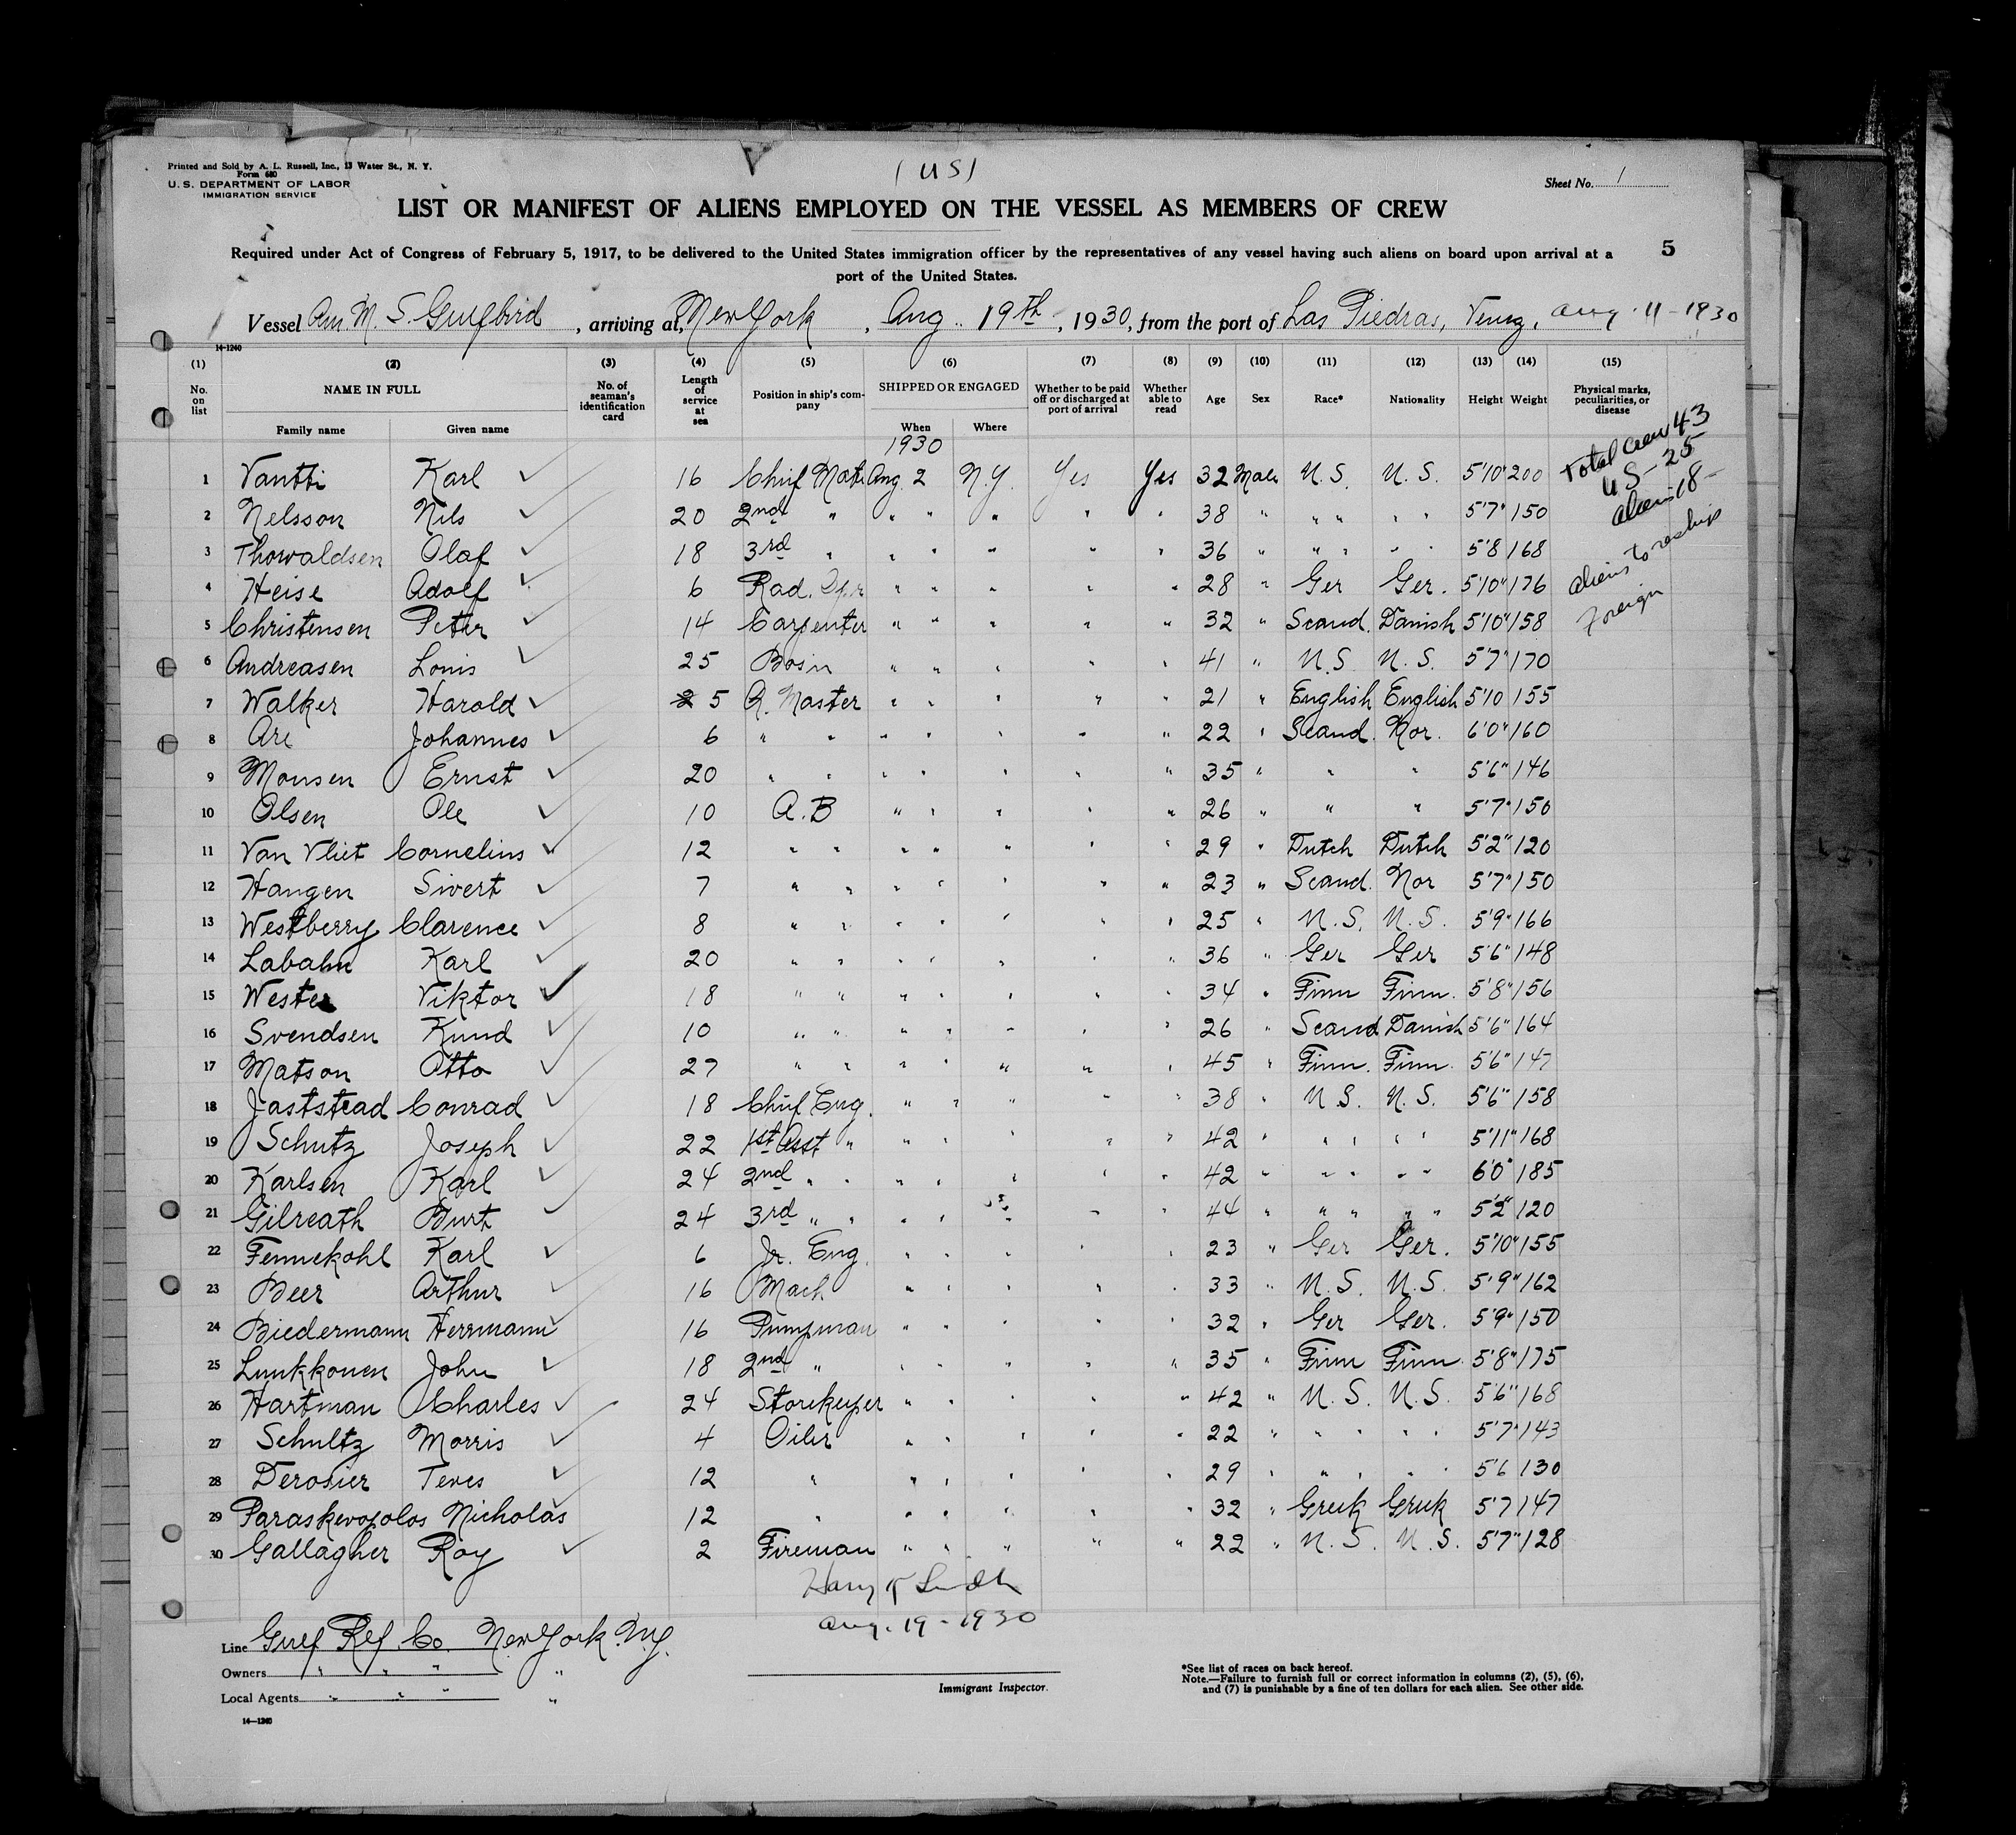 Printed and Sold by A. L. Russell, Inc., 13 Water St., N. Y.
Form 680
U. S. DEPARTMENT OF LABOR
IMMIGRATION SERVICE
(US)
Sheet No. 1
LIST OR MANIFEST OF ALIENS EMPLOYED ON THE VESSEL AS MEMBERS OF CREW
Required under Act of Congress of February 5, 1917, to be delivered to the United States immigration officer by the representatives of any vessel having such aliens on board upon arrival at a
port of the United States.
5
Vessel Am. M. S. Gulfbird, arriving at, New York, Aug. 19th, 1930, from the port of Las Piedras, Venez, Aug. 11 - 1930
14-1240
(1) (2) (3) (4) (5) (6) (7) (8) (9) (10) (11) (12) (13) (14) (15)
No. on list NAME IN FULL No. of seaman's identification card Length of service at sea Position in ship's company SHIPPED OR ENGAGED Whether to be paid off or discharged at port of arrival Whether able to read Age Sex Race* Nationality Height Weight Physical marks, peculiarities, or disease
Family name Given name When Where
1930
Total Crew 43
US - 25
Aliens 18 -
Aliens to reship
foreign
1 Vantti Karl ✓ 16 Chief Mate Aug. 2 N.Y. Yes Yes 32 Male U.S. U.S. 5'10" 200
2 Nelsson Nils ✓ 20 2nd " " " " " " 38 " " " " " 5'7" 150
3 Thorwaldsen Olaf ✓ 18 3rd " " " " " " 36 " " " " " 5'8 168
4 Heise Adolf ✓ 6 Rad. Opr " " " " " 28 " Ger Ger. 5'10" 176
5 Christensen Peter ✓ 14 Carpenter " " " " " 32 " Scand. Danish 5'10" 158
6 Andreasen Louis ✓ 25 Bosn " " " " " 41 " U.S. U.S. 5'7" 170
7 Walker Harold ✓ 5 Q. Master " " " " " 21 " English English 5'10 155
8 Are Johannes ✓ 6 " " " " " " " 22 " Scand. Nor. 6'0" 160
9 Monsen Ernst ✓ 20 " " " " " " " 35 " " " 5'6" 146
10 Olsen Ole ✓ 10 A.B " " " " " 26 " " " 5'7" 150
11 Van Vliet Cornelius ✓ 12 " " " " " " " 29 " Dutch Dutch 5'2" 120
12 Haugen Sivert ✓ 7 " " " " " " " 23 " Scand. Nor 5'7" 150
13 Westberry Clarence ✓ 8 " " " " " " " 25 " U.S. U.S. 5'9" 166
14 Labahn Karl ✓ 20 " " " " " " " 36 " Ger Ger 5'6" 148
15 Wester Viktor ✓ 18 " " " " " " " 34 " Finn Finn. 5'8" 156
16 Svendsen Knud ✓ 10 " " " " " " " 26 " Scand Danish 5'6" 164
17 Matson Otto ✓ 27 " " " " " " " 45 " Finn. Finn. 5'6" 147
18 Jaststead Conrad ✓ 18 Chief Eng. " " " " " 38 " U.S. U.S. 5'6" 158
19 Schutz Joseph ✓ 22 1st Asst " " " " " " 42 " " " " " 5'11" 168
20 Karlsen Karl ✓ 24 2nd " " " " " " " 42 " " " " " 6'0" 185
21 Gilreath Burt ✓ 24 3rd " " " " " " " 44 " " " " " 5'2" 120
22 Fennekohl Karl ✓ 6 Jr. Eng. " " " " " 23 " Ger Ger. 5'10" 155
23 Beer Arthur ✓ 16 Mach " " " " " 33 " U.S. U.S. 5'9" 162
24 Biedermann Herrmann ✓ 16 Pumpman " " " " " 32 " Ger Ger. 5'9" 150
25 Luukkonen John ✓ 18 2nd " " " " " " 35 " Finn Finn 5'8" 175
26 Hartman Charles ✓ 24 Storekeeper " " " " " 42 " U.S. U.S. 5'6" 168
27 Schultz Morris ✓ 4 Oiler " " " " " 22 " " " " " 5'7" 143
28 Derosier Teves ✓ 12 " " " " " " 29 " " " " " 5'6 130
29 Paraskevopolos Nicholas ✓ 12 " " " " " " 32 " Greek Greek 5'7 147
30 Gallagher Roy ✓ 2 Fireman " " " " " 22 " U.S. U.S. 5'7" 128
Aug. 19 - 1930
Line Gulf Ref. Co. New York. N.Y.
Owners " " " "
Local Agents " " " "
Immigrant Inspector.
*See list of races on back hereof.
Note.—Failure to furnish full or correct information in columns (2), (5), (6),
and (7) is punishable by a fine of ten dollars for each alien. See other side.
14—1240